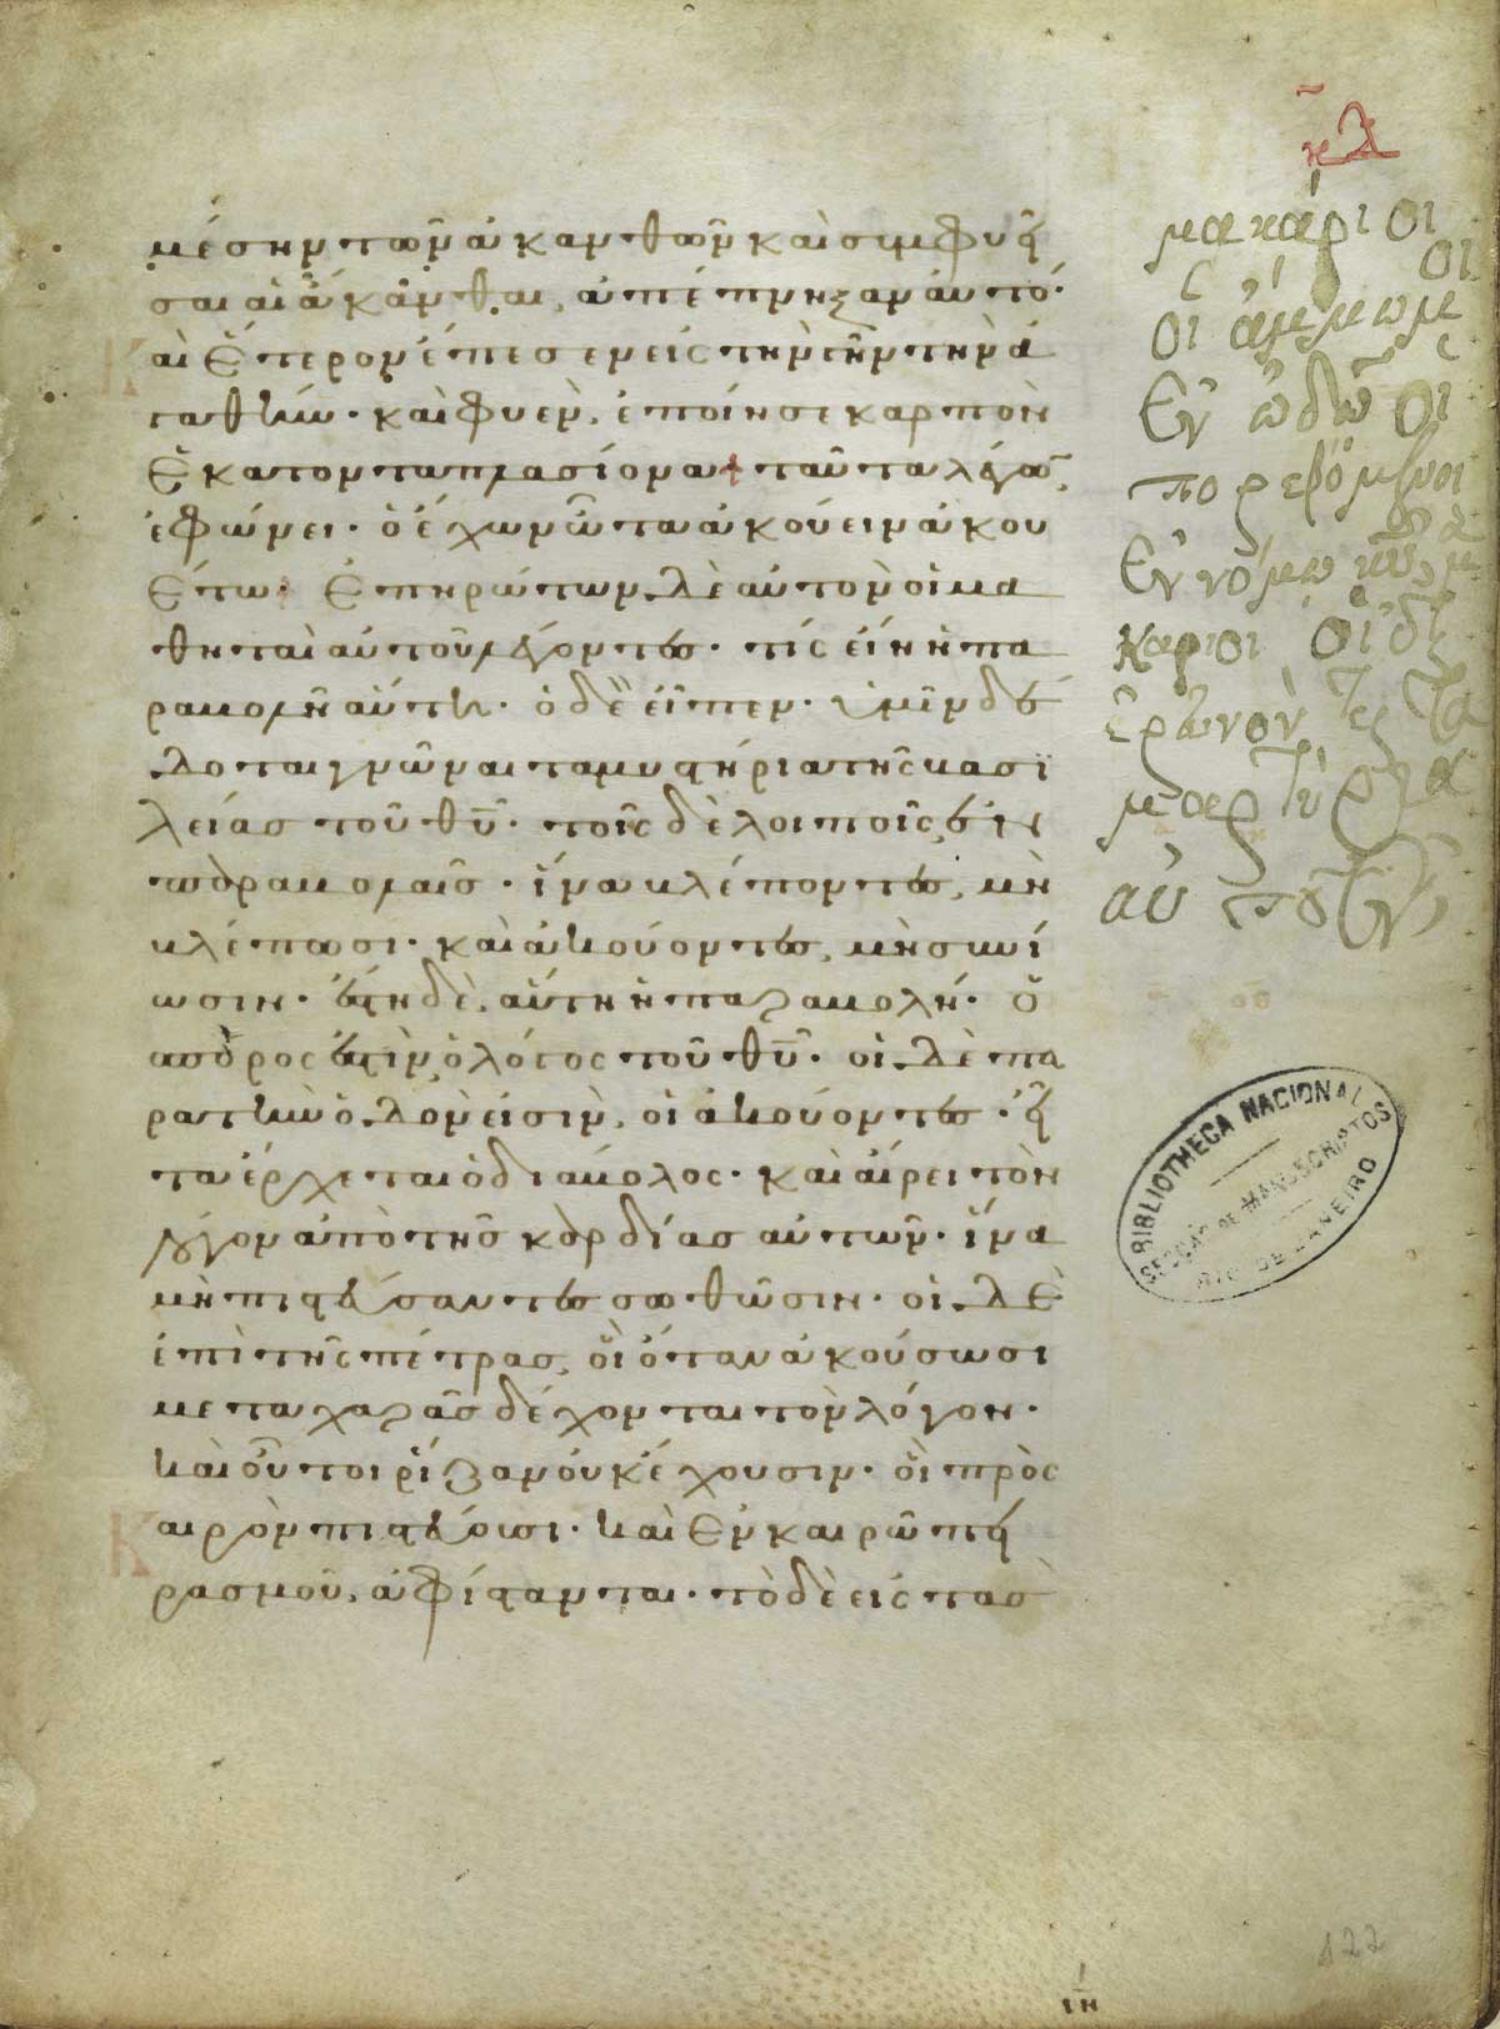 κλ
μέσῃν τῶν ἀκανθῶν καὶ συμφυεῖ
σαι αἱ ἄκανθαι, ἀπέπνηξαν αὐτό·
αὶ ἕτερον ἔπεσεν εἰς τὴν γῆν τὴν ἀ
γαθήν· καὶ φυὲν, ἐποίησε καρπὸν
ἑκατονταπλασίονα ταῦτα λέγων,
ἐφώνει· ὁ ἔχων ὦτα ἀκούειν ἀκου
έτω· ἐπηρώτων δὲ αὐτὸν οἱ μα
θηταὶ αὐτοῦ λέγοντες· τίς εἴη ἡ πα
ραβολὴ αὕτη· ὁ δὲ εἶπεν· ὑμῖν δέ
δοται γνῶναι τὰ μυστήρια τῆς βασι
λείας τοῦ θυ· τοῖς δὲ λοιποῖς, ἐν
παραβολαῖς· ἵνα βλέποντες, μὴ
βλέπωσι· καὶ ἀκούοντες, μὴ συνί
ωσιν· ἔστι δὲ, αὕτη ἡ παραβολή· ὁ
σπόρος ἐστὶν ὁ λόγος τοῦ θυ· οἱ δὲ πα
ρὰ τὴν ὁδὸν εἰσὶν, οἱ ἀκούοντες· εἶ
τα ἔρχεται ὁ διάβολος· καὶ αἴρει τὸν
λόγον ἀπὸ τῆς καρδίας αὐτῶν· ἵνα
μὴ πιστεύσαντες σωθῶσιν· οἱ δὲ
ἐπὶ τῆς πέτρας, οἳ ὅταν ἀκούσωσι
μετὰ χαρᾶς δέχονται τὸν λόγον·
καὶ οὗτοι ῥίζαν οὐκ ἔχουσιν· οἳ πρὸς
αιρὸν πιστεύουσι· καὶ ἐν καιρῶ πει
ρασμοῦ, ἀφίστανται· τὸ δὲ εἰς τὰς
μακάριοι
οι
οἱ ἄμωμ
ἐν ὁδῶ οἱ
πορεβόμενοι
Ἐν νόμω κυ, μα
καριοι οἱ ἐξ
ερωνον τες τα
μαρτύρια
αὐτοῦ ἐν
BIBLIOTHECA NACIONAL
SECÇÃO DE MANUSCRIPTOS
RIO DE JANEIRO
122
ιη